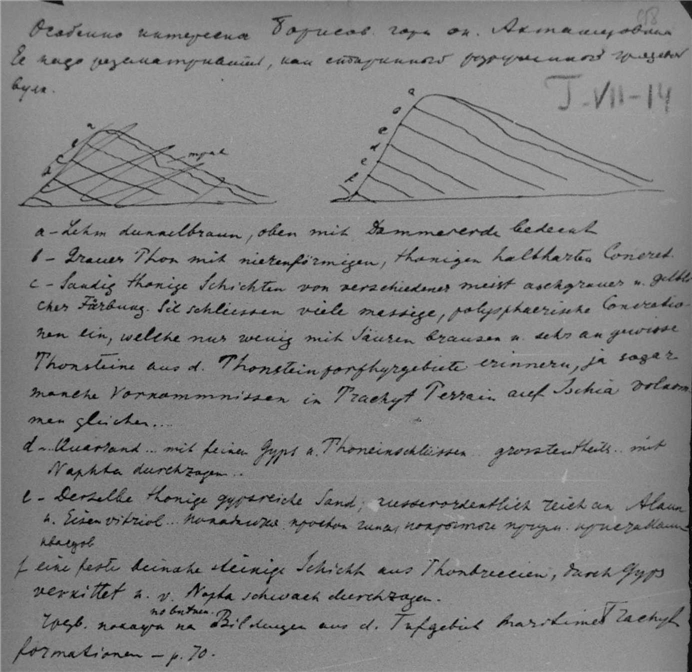 158
Особенно интересна Борисов. гора ок. Ахтанизовки
Ее надо рассматривать, как старинного разрушенного грязев
вулк.
I-VII-14
a
b
c
d
e
a
b
c
d
e
f
a - Lehm dunkelbraun, oben mit Dammererde bedeckt
b - Grauer Thon mit nierenförmigen, thonigen halbharten Concret.
c - Sandig thonige Schichten von verschiedener meist aschgrauer u. gelbli
cher Färbung. Sie schliessen viele massige, polysphaerische Concretio-
nen ein, welche nur wenig mit Säuren brausen u. sehr an gewisse
Thonsteine aus d. Thonsteinporphyrgebiete erinnern, ja sogar
manche Vorkommnissen in Trachyt Terrain auf Ischia vollkom
men gleichen...
d - Quarsand... mit feinen Gyps u. Thoneinschlüssen.. grosstentheils.. mit
Naphta durchzogen..
e - Derselbe thonige gypsreiche Sand; ausserordentlich reich an Alaun
u. Eisenvitriol... прослои гипса,
f eine feste beinahe steinige Schicht aus Thonbreccien, durch Gyps
verkittet u. v. Napha schwach durchzogen.
на Bildungen aus d. Tufgebiet Trachyt
formationen - p. 70.